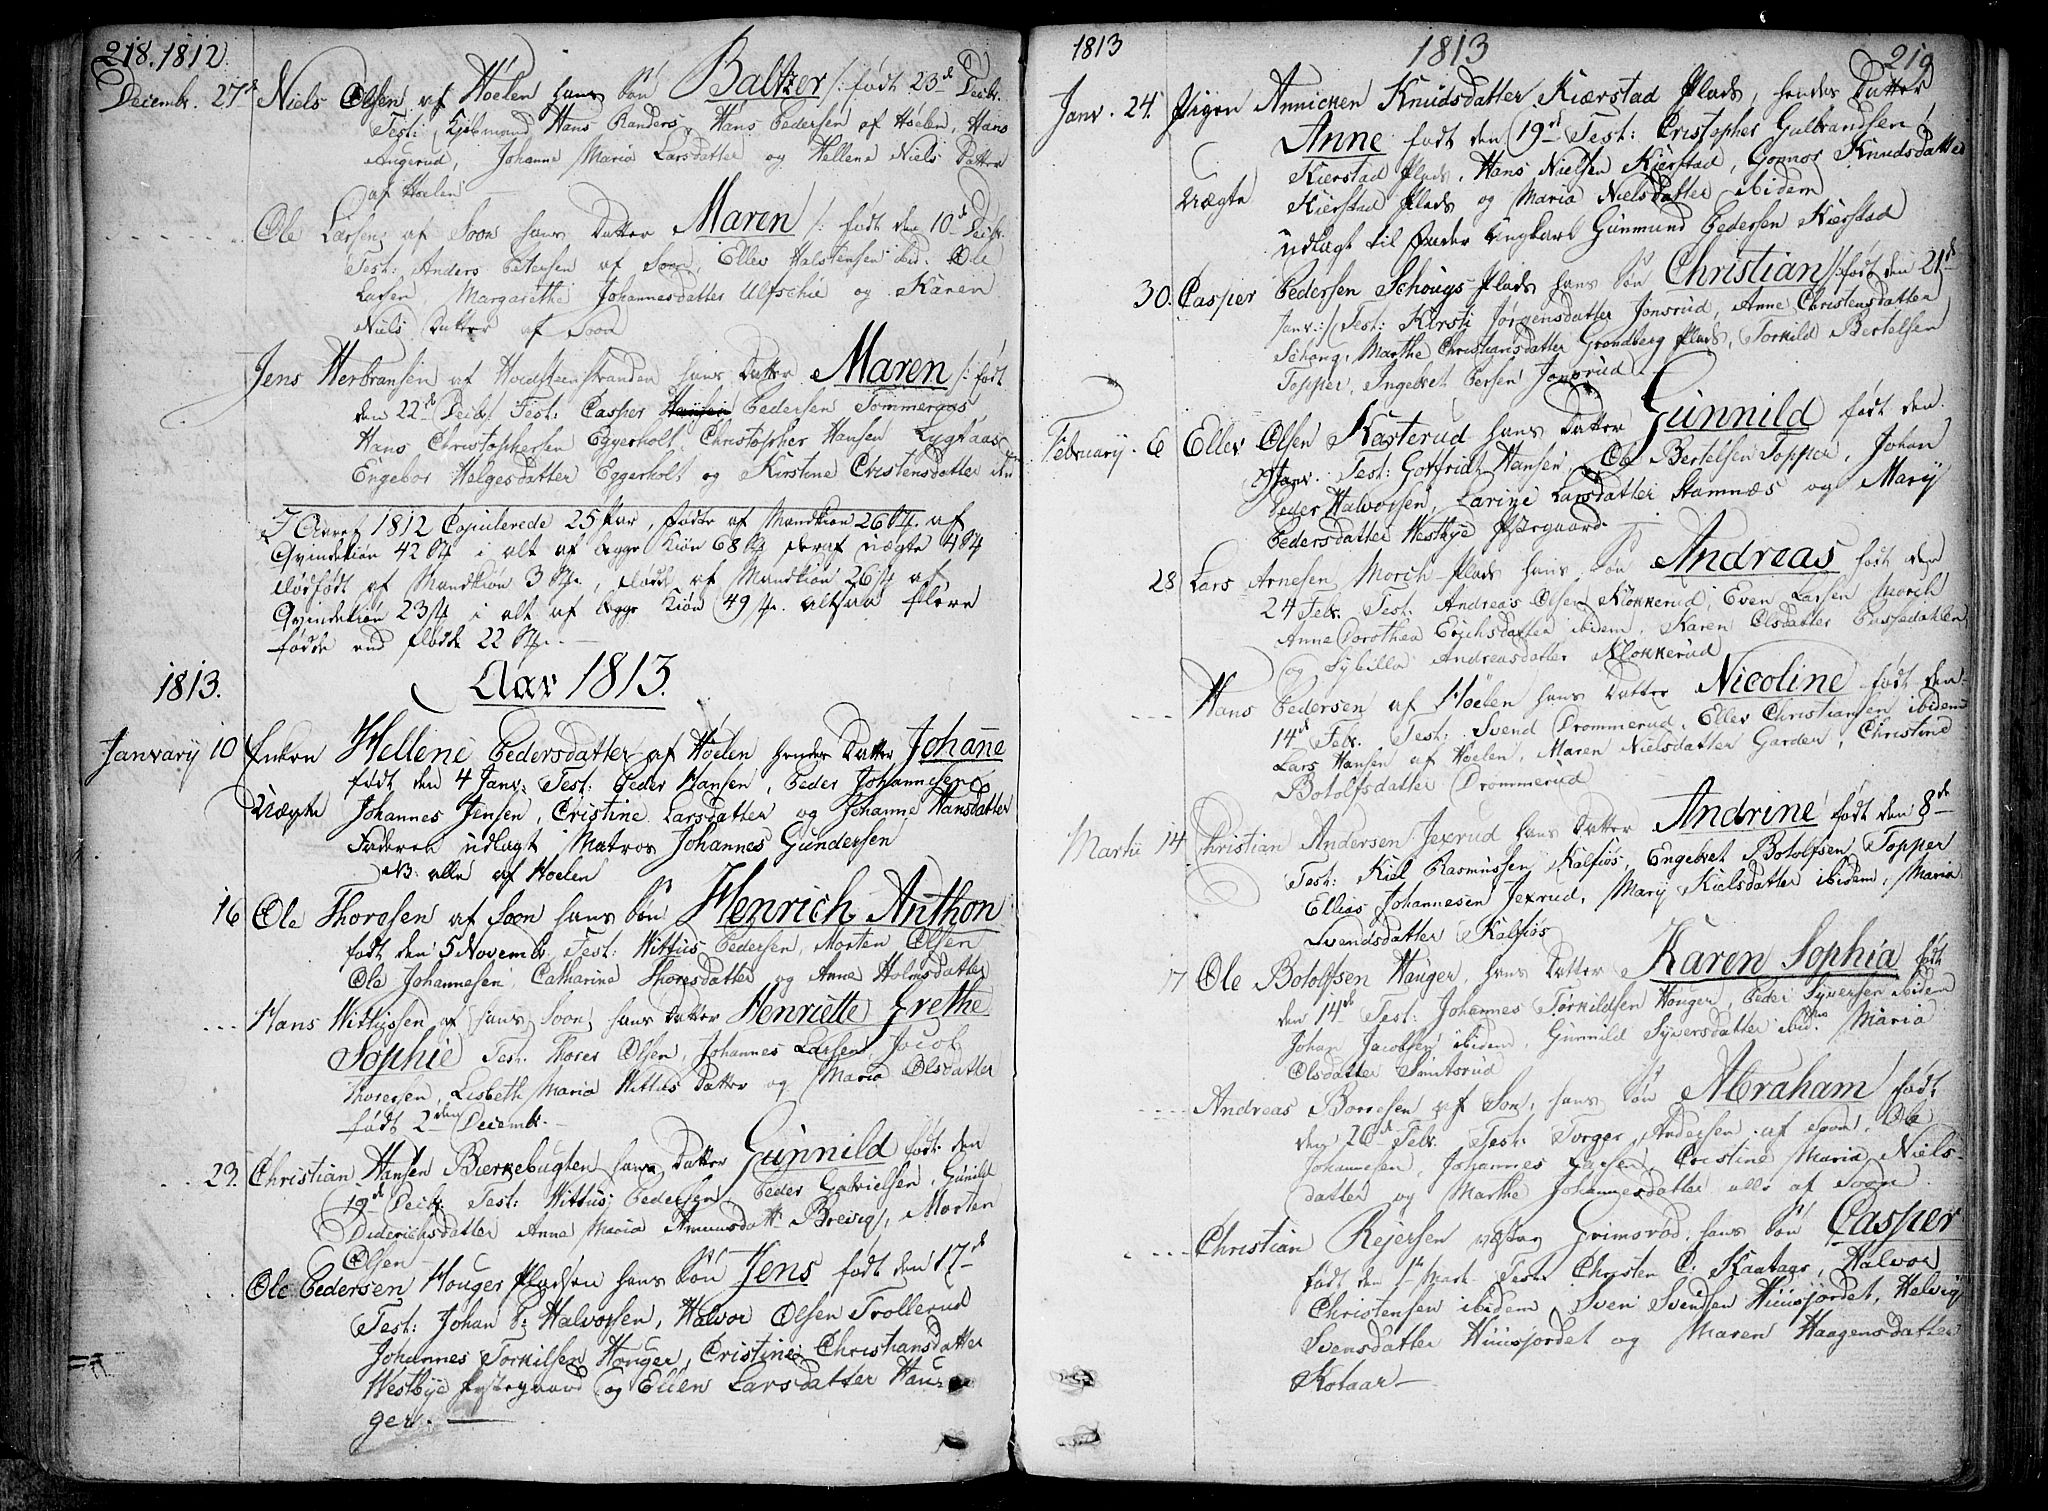 218. 1812.
Decembr. 27de Niels Olsen af Høelen hans Søn Baltzer /: født 23de Decbr.
Test: Kjøbmand Hans Randers, Hans Pedersen af Høelen, Hans
Angerud, Johanne Maria Larsdatter og Hellene Niels Datter
af Høelen
Ole Larsen af Soon hans Datter Maren /: født den 10de Decbr.
Test: Anders Petersen af Soon, Ellev Halstensen ibid. Ole
Larsen, Margarethe Johannesdatter Ulfschie og Karen
Niels Datter af Soon
Jens Herbransen af Hvidsteenstranden hans Datter Maren /: født
den 22de Decbr. Test: Casper Pedersen Tømmeraas,
Hans Christophersen Eggerholt, Christopher Hansen Lygtaas
Engebor Helgesdatter Eggerholt og Kirstine Cristensdatter ibm
I Aaret 1812 Copulerede 25 Par, fødte af Mandkiøn 26 St. af
Qvindekiøn 42 St. i alt af begge Kiøn 68 St. deraf uægte 4 St
dødfødt af Mandkiøn 3 St., døde af Mandkiøn 26 St. af
Qvindekiøn 23 St. i alt af begge Kiøn 49 St. altsaa flere
fødde end døde 22 St.
1813. Aar 1813.
Januarij 10 Enken Hellene Pedersdatter af Høelen hendes Datter Johanne
født den 4 Janv: Test: Peder Hansen, Peder Johannesen
Uægte Johannes Jensen, Cristine Larsdatter og Johanne Hansdatter
Faderen udlagt Matros Johannes Gundersen
NB: alle af Høelen
16 Ole Thoresen af Soon hans Søn Henrich Anthon
født den 5 Novembr. Test: Wittus Pedersen, Morten Olsen
Ole Johannesen, Catharine Thoresdatter og Anne Holmsdatter
Hans Wittussen af Soon, hans Datter Henriette Grethe
Sophie Test. Thores Olsen, Johannes Larsen, Jacob
Thoresen, Lisbeth Maria Wittus Datter og Maria Olsdatter
født 2den Decembr.
23. Christian Hansen Bierkebugten hans Datter Gunnild født den
19de Decbr. Test: Wittus Pedersen, Peder Gabrielsen, Gunild
Diderichsdatter Anne Maria Amunsdatt. Brevig, Morten
Olsen
Ole Pedersen Houger Pladsen hans Søn Jens født den 17de
Test: Johan P: Halvorsen, Halvor Olsen Trollerud
Johannes Torkilsen Houger, Cristine Christiansdatter
Westbye Præstegaard og Ellen Larsdatter Hau-
ger.
1813 1813 219
Janv. 24. Pigen Annicken Knudsdatter Kierstad Plads, hendes Datter
Anne født den 19de Test: Cristopher Gulbrandsen
Kierstad Plads, Hans Nielsen Kierstad, Gonnor Knudsdatter
Uægte Kierstad Plads og Maria Nielsdatter ibidem
udlagt til Fader Ungkarl Gunmund Pedersen Kierstad
30. Casper Pedersen Schougs Plads hans Søn Christian /: født den 21de
Janv: :/ Test: Kirsti Jørgensdatter Jonsrud, Anne Christensdatter
Schoug, Marthe Christiansdatter Grondberg Plads, Torkild Bertelsen
Topper, Ingebret Persen Jonsrud
February. 6 Ellev Olsen Karterud hans Datter Gunnild født den
Janv. Test: Gotfridt Hansen, Ole Bertelsen Topper, Johan
Peder Halvorsen, Larine Larsdatter Stamnæs og Mary
Pedersdatter Westbye Præstegaard
28 Lars Arnesen Morch Plads hans Søn Andreas født den
24 Febr. Test. Andreas Olsen Klokkerud, Even Larsen Morch
Anne Dorothea Erichsdatter ibidem, Karen Olsdatter
og Sybilla Andreasdatter Klokkerud
Hans Pedersen af Høelen hans Datter Nicoline født den
14de Febr. Test: Svend Drommerud, Ellev Christiansen ibidem
Lars Hansen af Høelen, Maren Nielsdatter Garder, Christine
Botolfsdatter Drommerud
Martii 14 Christian Andersen Jexrud hans Datter Andrine født den 8de
Test: Kiel Rasmussen Kalsiøs, Engebret Botolfsen Topper
Ellias Johannesen Jexrud, Mary Kielsdatter ibidem, Maria
Svendsdatter Kalsiøs
17 Ole Botolfsen Hauger, hans Datter Karen Sophia født
den 14de Test: Johannes Torkildsen Houger, Peder Syversen ibidem
Johan Jacobsen ibidem, Gunnild Syversdatter ibid. Maria
Olsdatter Smitsrud
Andreas Borresen af Son, hans Søn Abraham født
den 26de Febr. Test: Torger Andersen af Soon, Ole
Johannesen, Johannes Larsen, Cristine Maria Niels-
datter og Marthe Johannesdatter alle af Soon
Christian Rejersen Grimsrød, hans Søn Casper
født den 1ste Mart. Test. Christen C: Kaataar, Halvor
Christensen ibidem Sven Svensen Huusjordet, Helvig
Svensdatter Huusjordet og Maren Haagensdatter
Kotaar